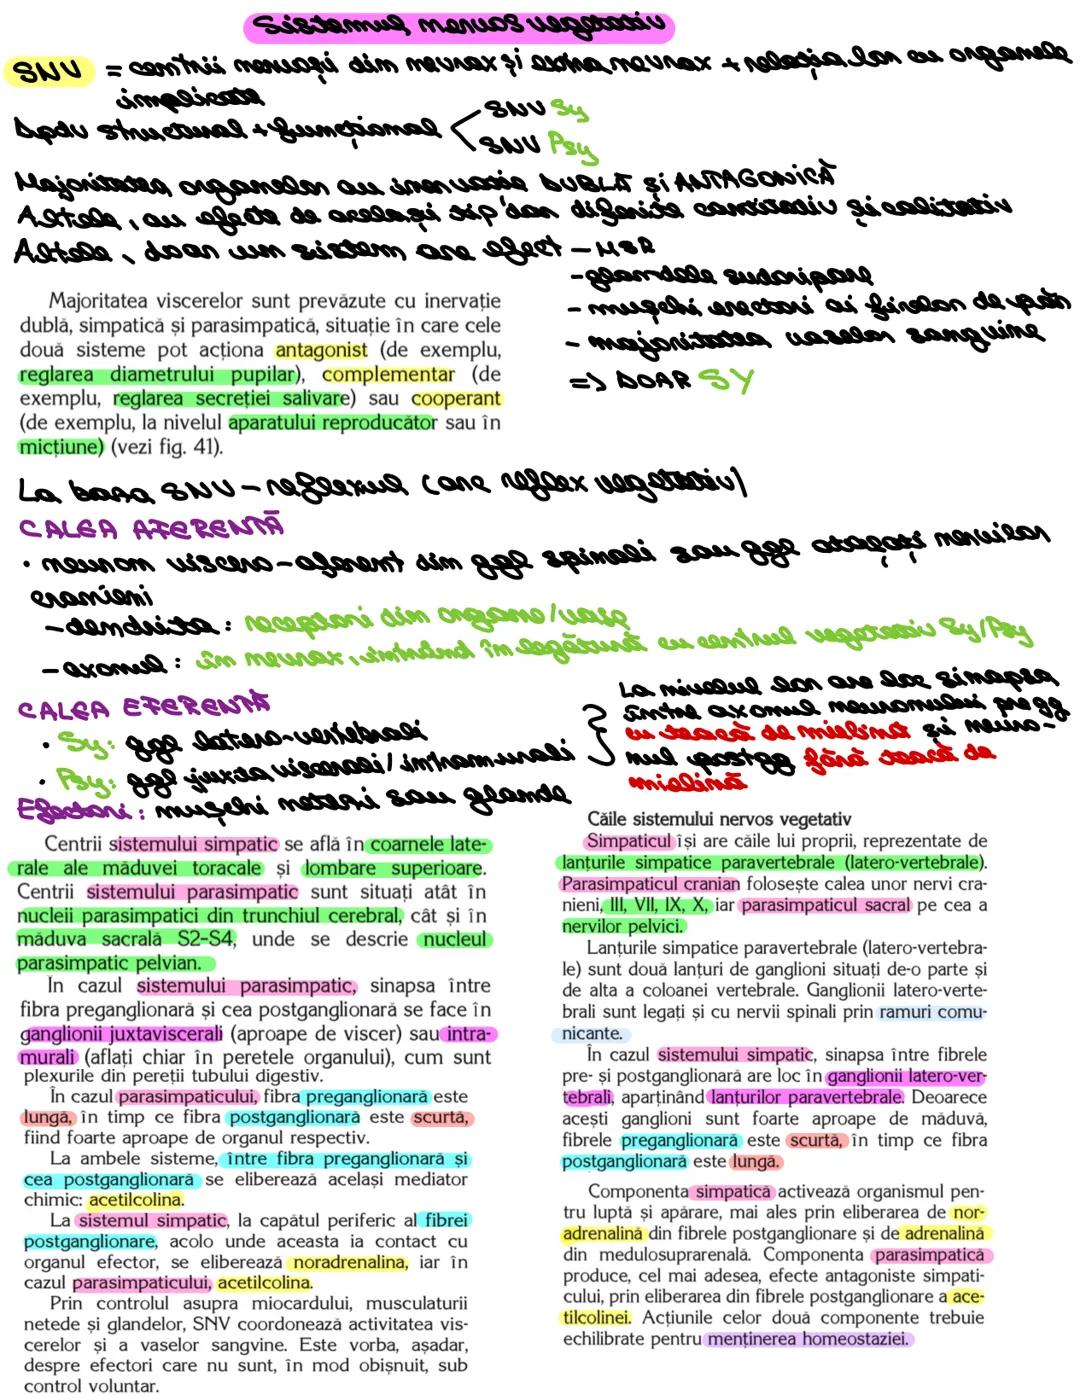 Sistemul nervos vegetativ
SNV = centrii nervoși din nevrax și extranevrax + relația lor cu organele
implicate
Dpdv structural + funcțional < SNV Sy
SNV Psy
Majoritatea organelor au inervație DUBLĂ și ANTAGONICĂ
Altele, au efecte de același tip dar diferite cantitativ și calitativ
Altele, doar un sistem are efect - MSR
- glandele sudoripare
- mușchi erectori ai firelor de păr
- majoritatea vaselor sanguine
=> DOAR SY
Majoritatea viscerelor sunt prevăzute cu inervație
dublă, simpatică și parasimpatică, situație în care cele
două sisteme pot acționa antagonist (de exemplu,
reglarea diametrului pupilar), complementar (de
exemplu, reglarea secreției salivare) sau cooperant
(de exemplu, la nivelul aparatului reproducător sau în
micțiune) (vezi fig. 41).
La baza SNV - reflexul (arc reflex vegetativ)
CALEA AFERENTĂ
• neuron viscero-aferent din ggl spinali sau ggl atașați nervilor
cranieni
- dendrita: receptori din organe/vase
- axonul: în nevrax, intrând în legătură cu centrul vegetativ Sy/Psy
CALEA EFERENTĂ
• Sy: ggl latero-vertebrali
• Psy: ggl juxtaviscerali/intramurali
La nivelul lor are loc sinapsa
între axonul neuronului pregg
cu teacă de mielină și neuro-
nul postgg fără teacă de
mielină
Efectori: mușchi netezi sau glande
Centrii sistemului simpatic se află în coarnele late-
rale ale măduvei toracale și lombare superioare.
Centrii sistemului parasimpatic sunt situați atât în
nucleii parasimpatici din trunchiul cerebral, cât și în
măduva sacrală S2-S4, unde se descrie nucleul
parasimpatic pelvian.
În cazul sistemului parasimpatic, sinapsa între
fibra preganglionară și cea postganglionară se face în
ganglionii juxtaviscerali (aproape de viscer) sau intra-
murali (aflați chiar în peretele organului), cum sunt
plexurile din pereții tubului digestiv.
În cazul parasimpaticului, fibra preganglionară este
lungă, în timp ce fibra postganglionară este scurtă,
fiind foarte aproape de organul respectiv.
La ambele sisteme, între fibra preganglionară și
cea postganglionară se eliberează același mediator
chimic: acetilcolina.
La sistemul simpatic, la capătul periferic al fibrei
postganglionare, acolo unde aceasta ia contact cu
organul efector, se eliberează noradrenalina, iar în
cazul parasimpaticului, acetilcolina.
Prin controlul asupra miocardului, musculaturii
netede și glandelor, SNV coordonează activitatea vis-
cerelor și a vaselor sangvine. Este vorba, așadar,
despre efectori care nu sunt, în mod obișnuit, sub
control voluntar.
Căile sistemului nervos vegetativ
Simpaticul își are căile lui proprii, reprezentate de
lanțurile simpatice paravertebrale (latero-vertebrale).
Parasimpaticul cranian folosește calea unor nervi cra-
nieni, III, VII, IX, X, iar parasimpaticul sacral pe cea a
nervilor pelvici.
Lanțurile simpatice paravertebrale (latero-vertebra-
le) sunt două lanțuri de ganglioni situați de-o parte și
de alta a coloanei vertebrale. Ganglionii latero-verte-
brali sunt legați și cu nervii spinali prin ramuri comu-
nicante.
În cazul sistemului simpatic, sinapsa între fibrele
pre- și postganglionară are loc în ganglionii latero-ver-
tebrali, aparținând lanțurilor paravertebrale. Deoarece
acești ganglioni sunt foarte aproape de măduvă,
fibrele preganglionară este scurtă, în timp ce fibra
postganglionară este lungă.
Componenta simpatică activează organismul pen-
tru luptă și apărare, mai ales prin eliberarea de nor-
adrenalină din fibrele postganglionare și de adrenalină
din medulosuprarenală. Componenta parasimpatică
produce, cel mai adesea, efecte antagoniste simpati-
cului, prin eliberarea din fibrele postganglionare a ace-
tilcolinei. Acțiunile celor două componente trebuie
echilibrate pentru menținerea homeostaziei.